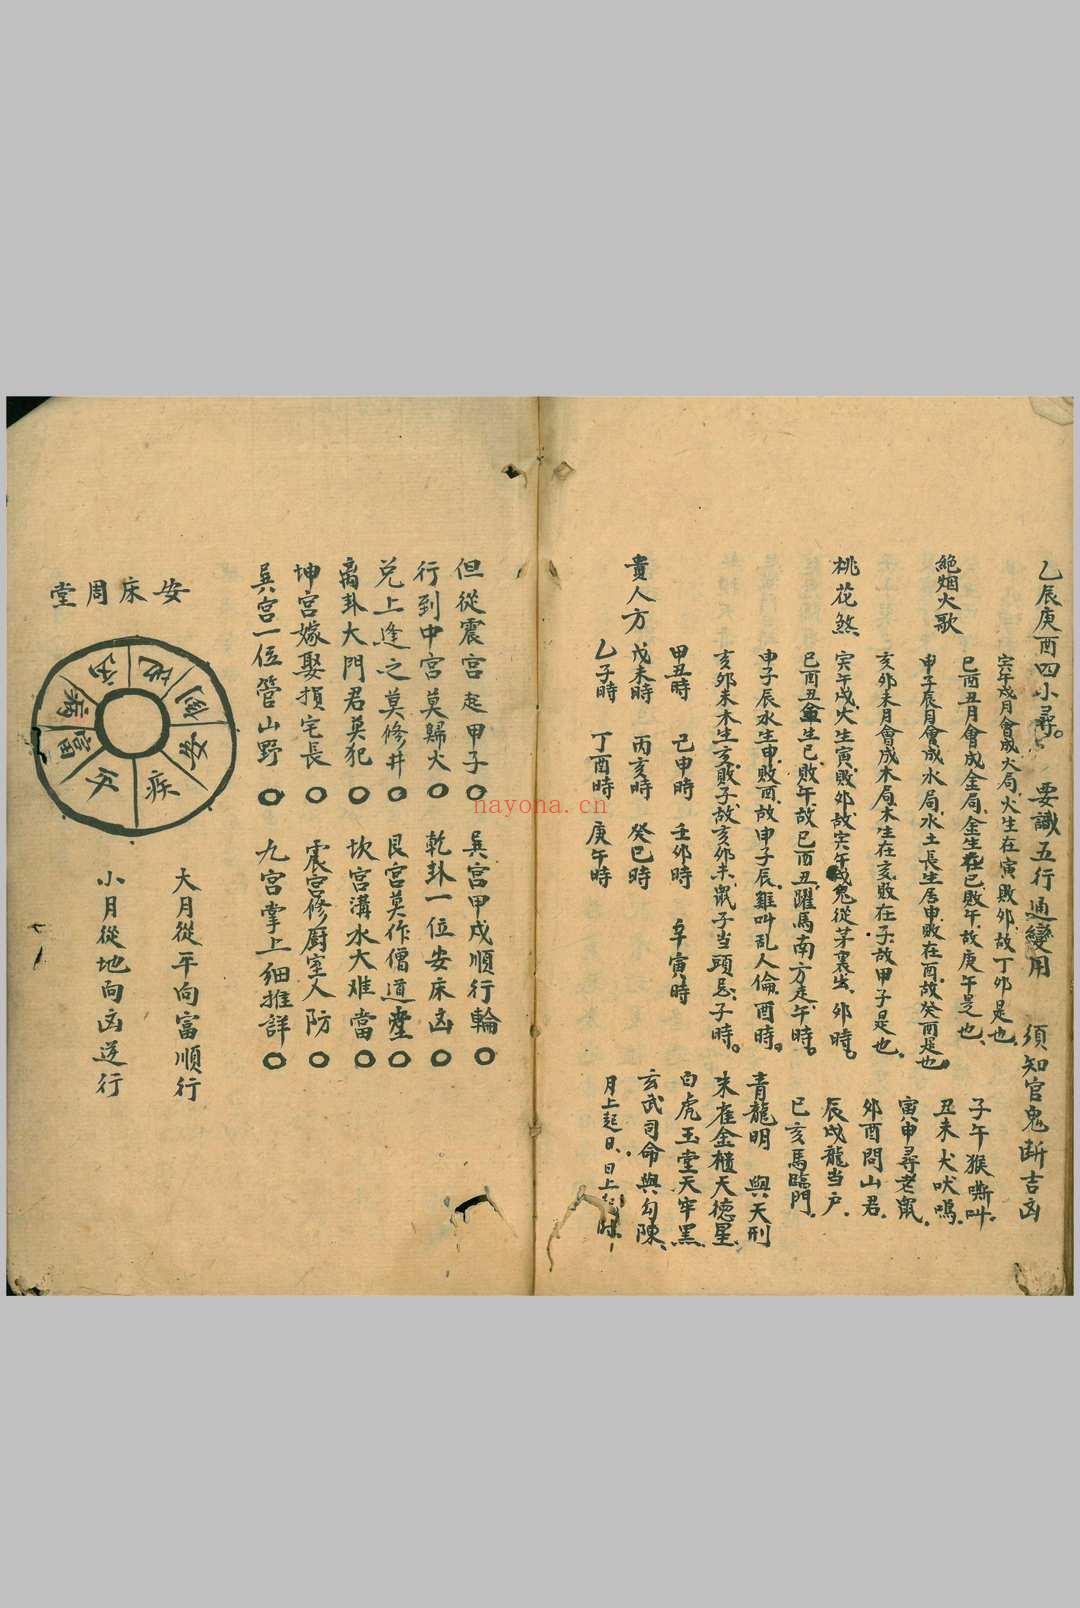 乙辰庚酉四小尋。 要識五行通變用 須知官鬼断吉凶
絕烟火歌
寅午戌月會成火局，火生在寅，敗卯，故丁卯是也，
巳酉丑月會成金局，金生在巳，敗午，故庚午是也，
申子辰月會成水局，水土長生居申，敗在酉，故癸酉是也，
亥卯未月會成木局，木生在亥，敗在子，故甲子是也。
桃花煞
寅午戌，火生寅，敗卯，故寅午戌，鬼從茅裏出，卯時。
巳酉丑金生巳，敗午，故巳酉丑，躍馬南方走，午時。
申子辰水生申，敗酉，故申子辰，雞叫乱人倫，酉時。
亥卯未木生亥，敗子，故亥卯未，鼠子当頭忌，子時。
子午猴嘶叫，
丑未犬吠鳴，
寅申尋老鼠，
卯酉問山君，
辰戌龍当户，
巳亥馬臨門，
貴人方
甲丑時 己申時 壬卯時 辛寅時
戊未時 丙亥時 癸巳時
乙子時 丁酉時 庚午時
青龍明 與天刑
朱雀金櫃天德星，
白虎玉堂天牢黑，
玄武司命與勾陳，
月上起日，日上起時，
但從震宮起甲子 巽宮甲戌順行輪
行到中宮莫歸火 乾卦一位安床凶
兌上逢之莫修井 艮宮莫作僧道堂
离卦大門君莫犯 坎宮溝水大难當
坤宮嫁娶損宅長 震宮修厨室人防
巽宮一位管山野 九宮掌上細推詳
安床周堂
地
凶
病
富
平
疾
安
大月從平向富順行
小月從地向凶逆行
nayona.cn